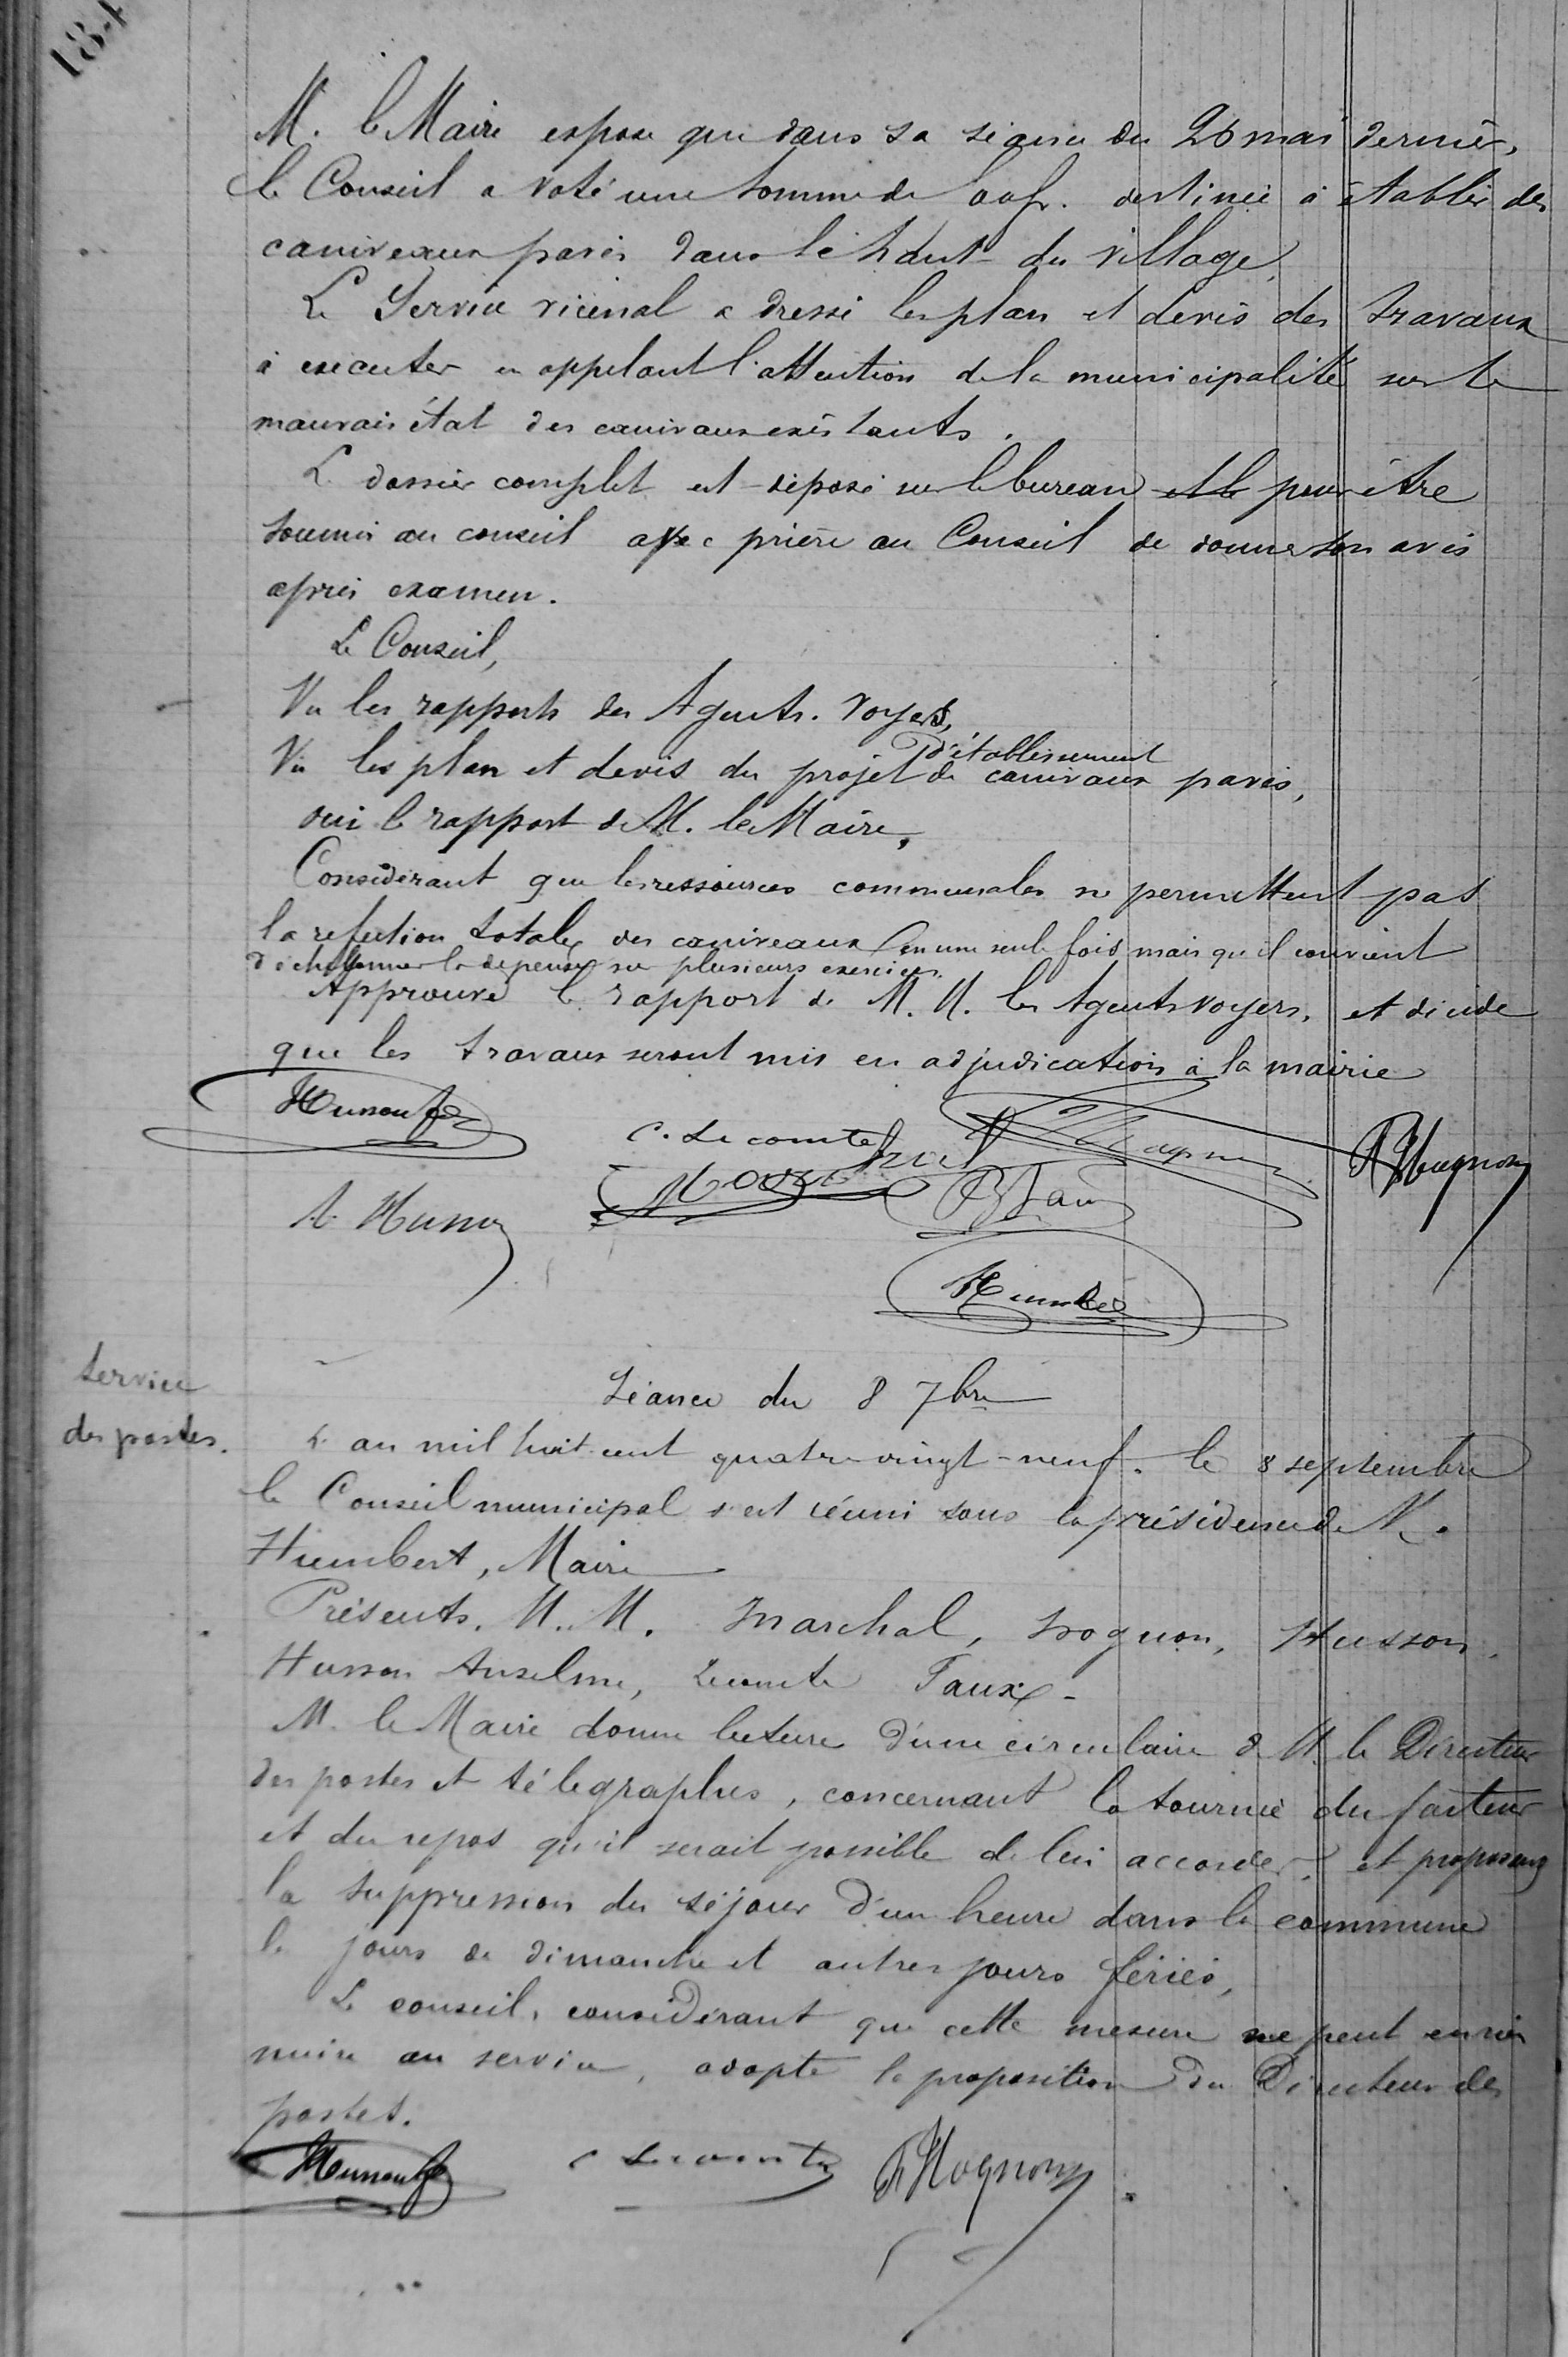 M. le Maire expose que dans sa séance du 26 mai dernier,
le Conseil a voté une somme de fr. destinée à établir des
caniveaux pavés dans le haut du village.
Le Service vicinal a dressé les plan et devis des travaux
à executer en appelant l'attention de la municipalité sur le
mauvais état des canivaux existants.
Le dossier complet est déposé sur le bureau et le pour être
soumis au conseil avec prière au Conseil de donner son avis
après examen.
Le Conseil,
Vu les rapports des Agents-Voyers,
d'établissement
Vu les plan et devis du projet de canivaux pavés,
oui le rapport de M. le Maire,
Considérant que les ressources communales ne permettent pas
la refection totale des caniveaux en une seule fois mais qu'il convient
d'échelonner la dépense sur plusieurs exercices.
Approuve le rapport de M. M. les Agents voyers, et décide
que les travaux seront mis en adjudication à la mairie
Husson
C. Lecomte
Marchal
A. Husson
Service
des postes.
Séance du 8 7bre
L'an mil huit cent quatre-vingt-neuf. le 8 septembre
le Conseil municipal s'est réuni sous la présidence de M.
Humbert, Maire
Présents. M. M. Marchal, Hognon, Husson,
Husson Anselme, Lecomte Faux-
M. le Maire donne lecture d'une circulaire de M. le Directeur
des postes et télégraphes, concernant la tournée du facteur
et du repos qu'il serait possible de lui accorder, et proposant
la suppression du séjour d'un heure dans la commune
le jours de dimanche et autres jours fériés,
Le conseil, considérant que cette mesure ne peut en rien
nuire au service, adopte la proposition du Directeur des
postes.
Husson
C Lecomte
Hognon